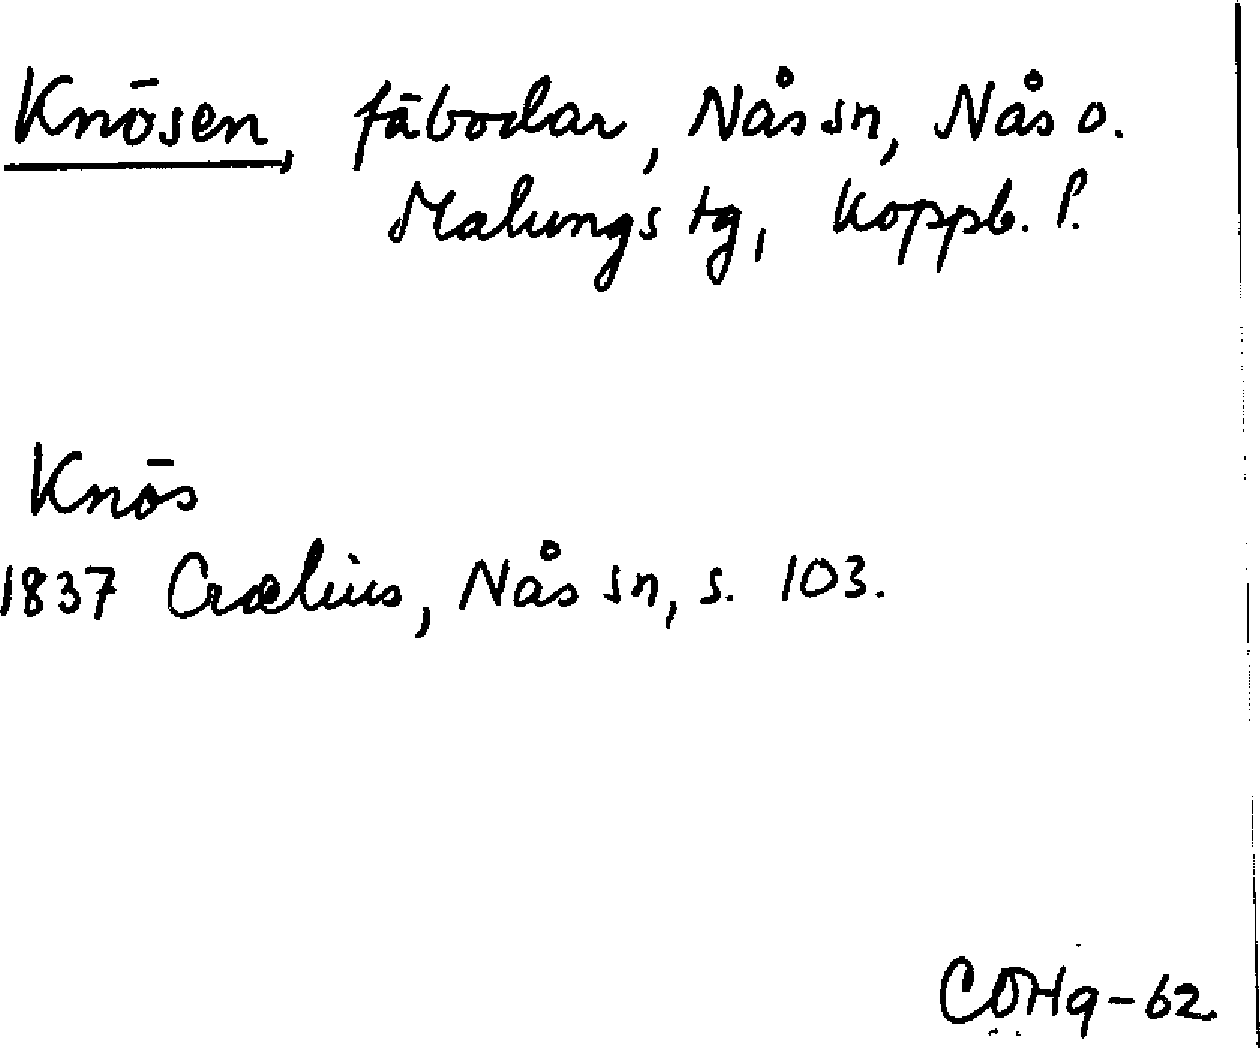 Knösen, fäbodar, Nås sn, Nås o.
Malungs tg, Koppb. l.
Knös
1837 Crælius, Nås sn, s. 103.
COHq-62